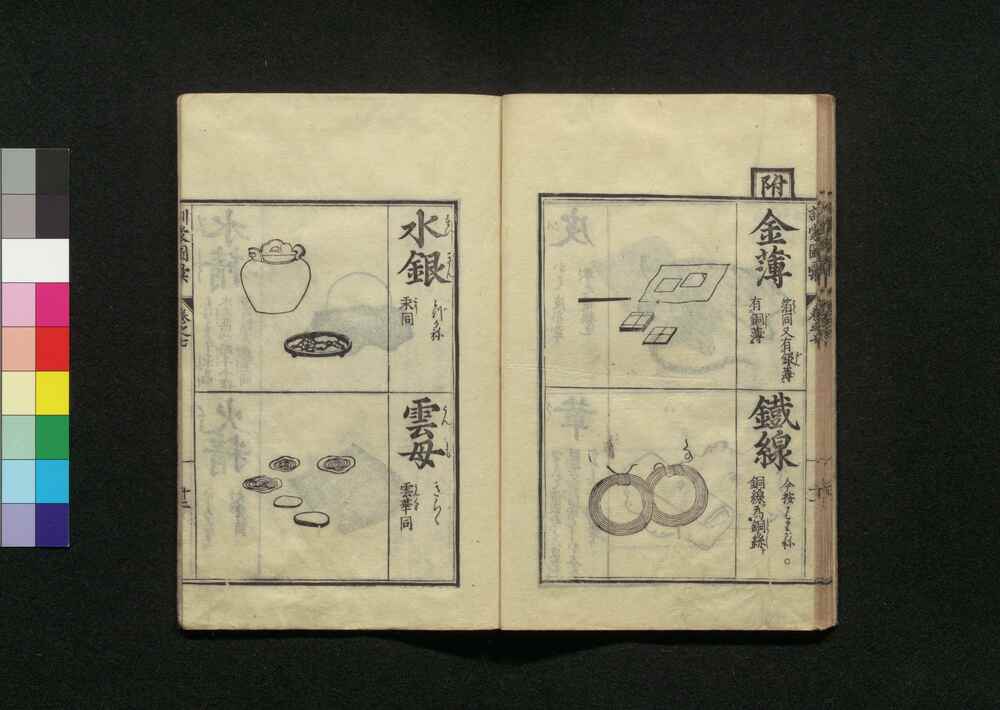 附
金薄
箔同又有銀薄
有銅薄
鐵線
今按はりがね○
銅線為銅絲
訓蒙圖彙
水銀
みづかね
汞同
雲母
きらゝ
雲華同
卷之七
十二